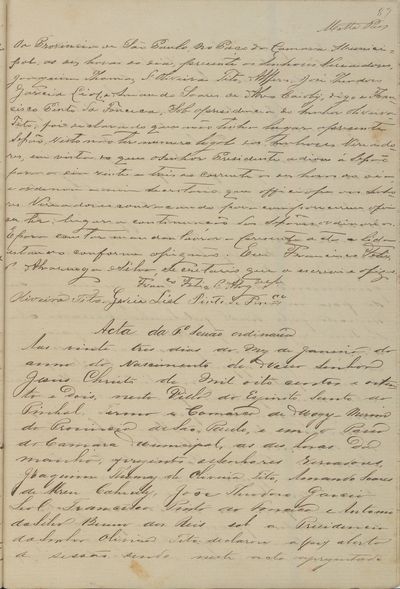 87
Motta Pais
da Provincia de São Paulo no Paço da Camara Munici-
pal, as dez horas do dia, presente os Senhores Vereadores,
Joaquim Thomaz, Oliveira Tito, Alferes José Theodoro
Garcia Leal, Amando Soares de Abreu Caiuby, digo e Fran-
cisco Pinto da Fonseca, Sob a presidencia do Senhor Oliveira
Tito, foi declarado que não tinha lugar a presente
Sessão, visto não ter numero legal dos Senhores Vereado-
res, em vista do que o Senhor Presidente adiou a Sessão
para o dia vinte e tres do corrente as dez horas do dia
e ordenou a mim Secretario que officiasse aos Senho-
res Vereadores
ter lugar a continuação das Sessões
E para constar mandou lavrar a presente acta
conforme Eu Francisco Felis
Secretario que a escrevi e assignei.
Oliveira Tito Garcia Leal Pinto da Fonca
Acta da 1ª Sessão ordinaria
Aos vinte tres dias do Mez de Janeiro do
anno do Nascimento de Nosso Senhor
Jesus Christo de Mil oito centos e oiten-
ta e dois, nesta Villa do Espirito Santo do
Pinhal, termo e Comarca de Mogy Mirim
da Provincia de São Paulo, e em o Paço
da Camara Municipal, as dez horas da
manhã, presentes os Senhores Vereadores,
Joaquim Thomaz de Oliveira Tito, Amando Soares
de Abreu Cahuby, José Theodoro Garcia
Leal, Francisco Pinto da Fonseca e Antonio
Bueno dos Reis sob a Presidencia
do Senhor Oliveira Tito declarou aberta
a sessão, sendo nesta acto apresentado